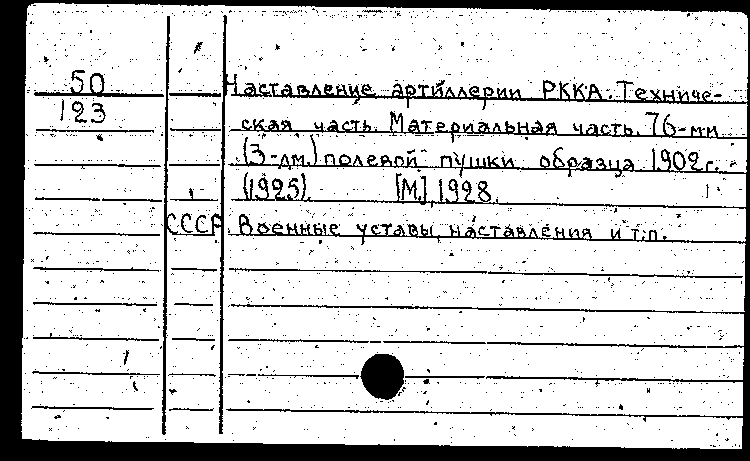 50
123
Наставление артиллерии РККА. Техниче-
ская часть. Материальная часть. 76-мм
(3-дм.) полевой пушки образца 1902 г.
(1925). [М.], 1928.
СССР. Военные уставы, наставления и т.п.